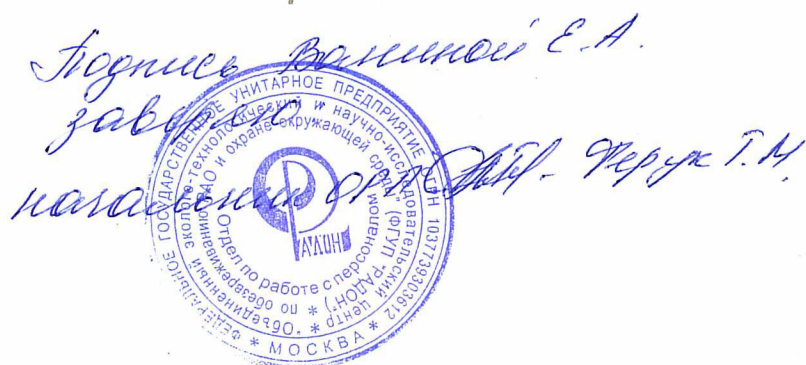 Подпись Ваниной Е.А.
заверяю.
начальник ОРП Ферук Т.М.
ФЕДЕРАЛЬНОЕ ГОСУДАРСТВЕННОЕ УНИТАРНОЕ ПРЕДПРИЯТИЕ
ОГРН 1037739303612
* МОСКВА *
"Объединенный эколого-технологический и научно-исследовательский центр
по обезвреживанию РАО и охране окружающей среды" (ФГУП "РАДОН")
Отдел по работе с персоналом
РАДОН